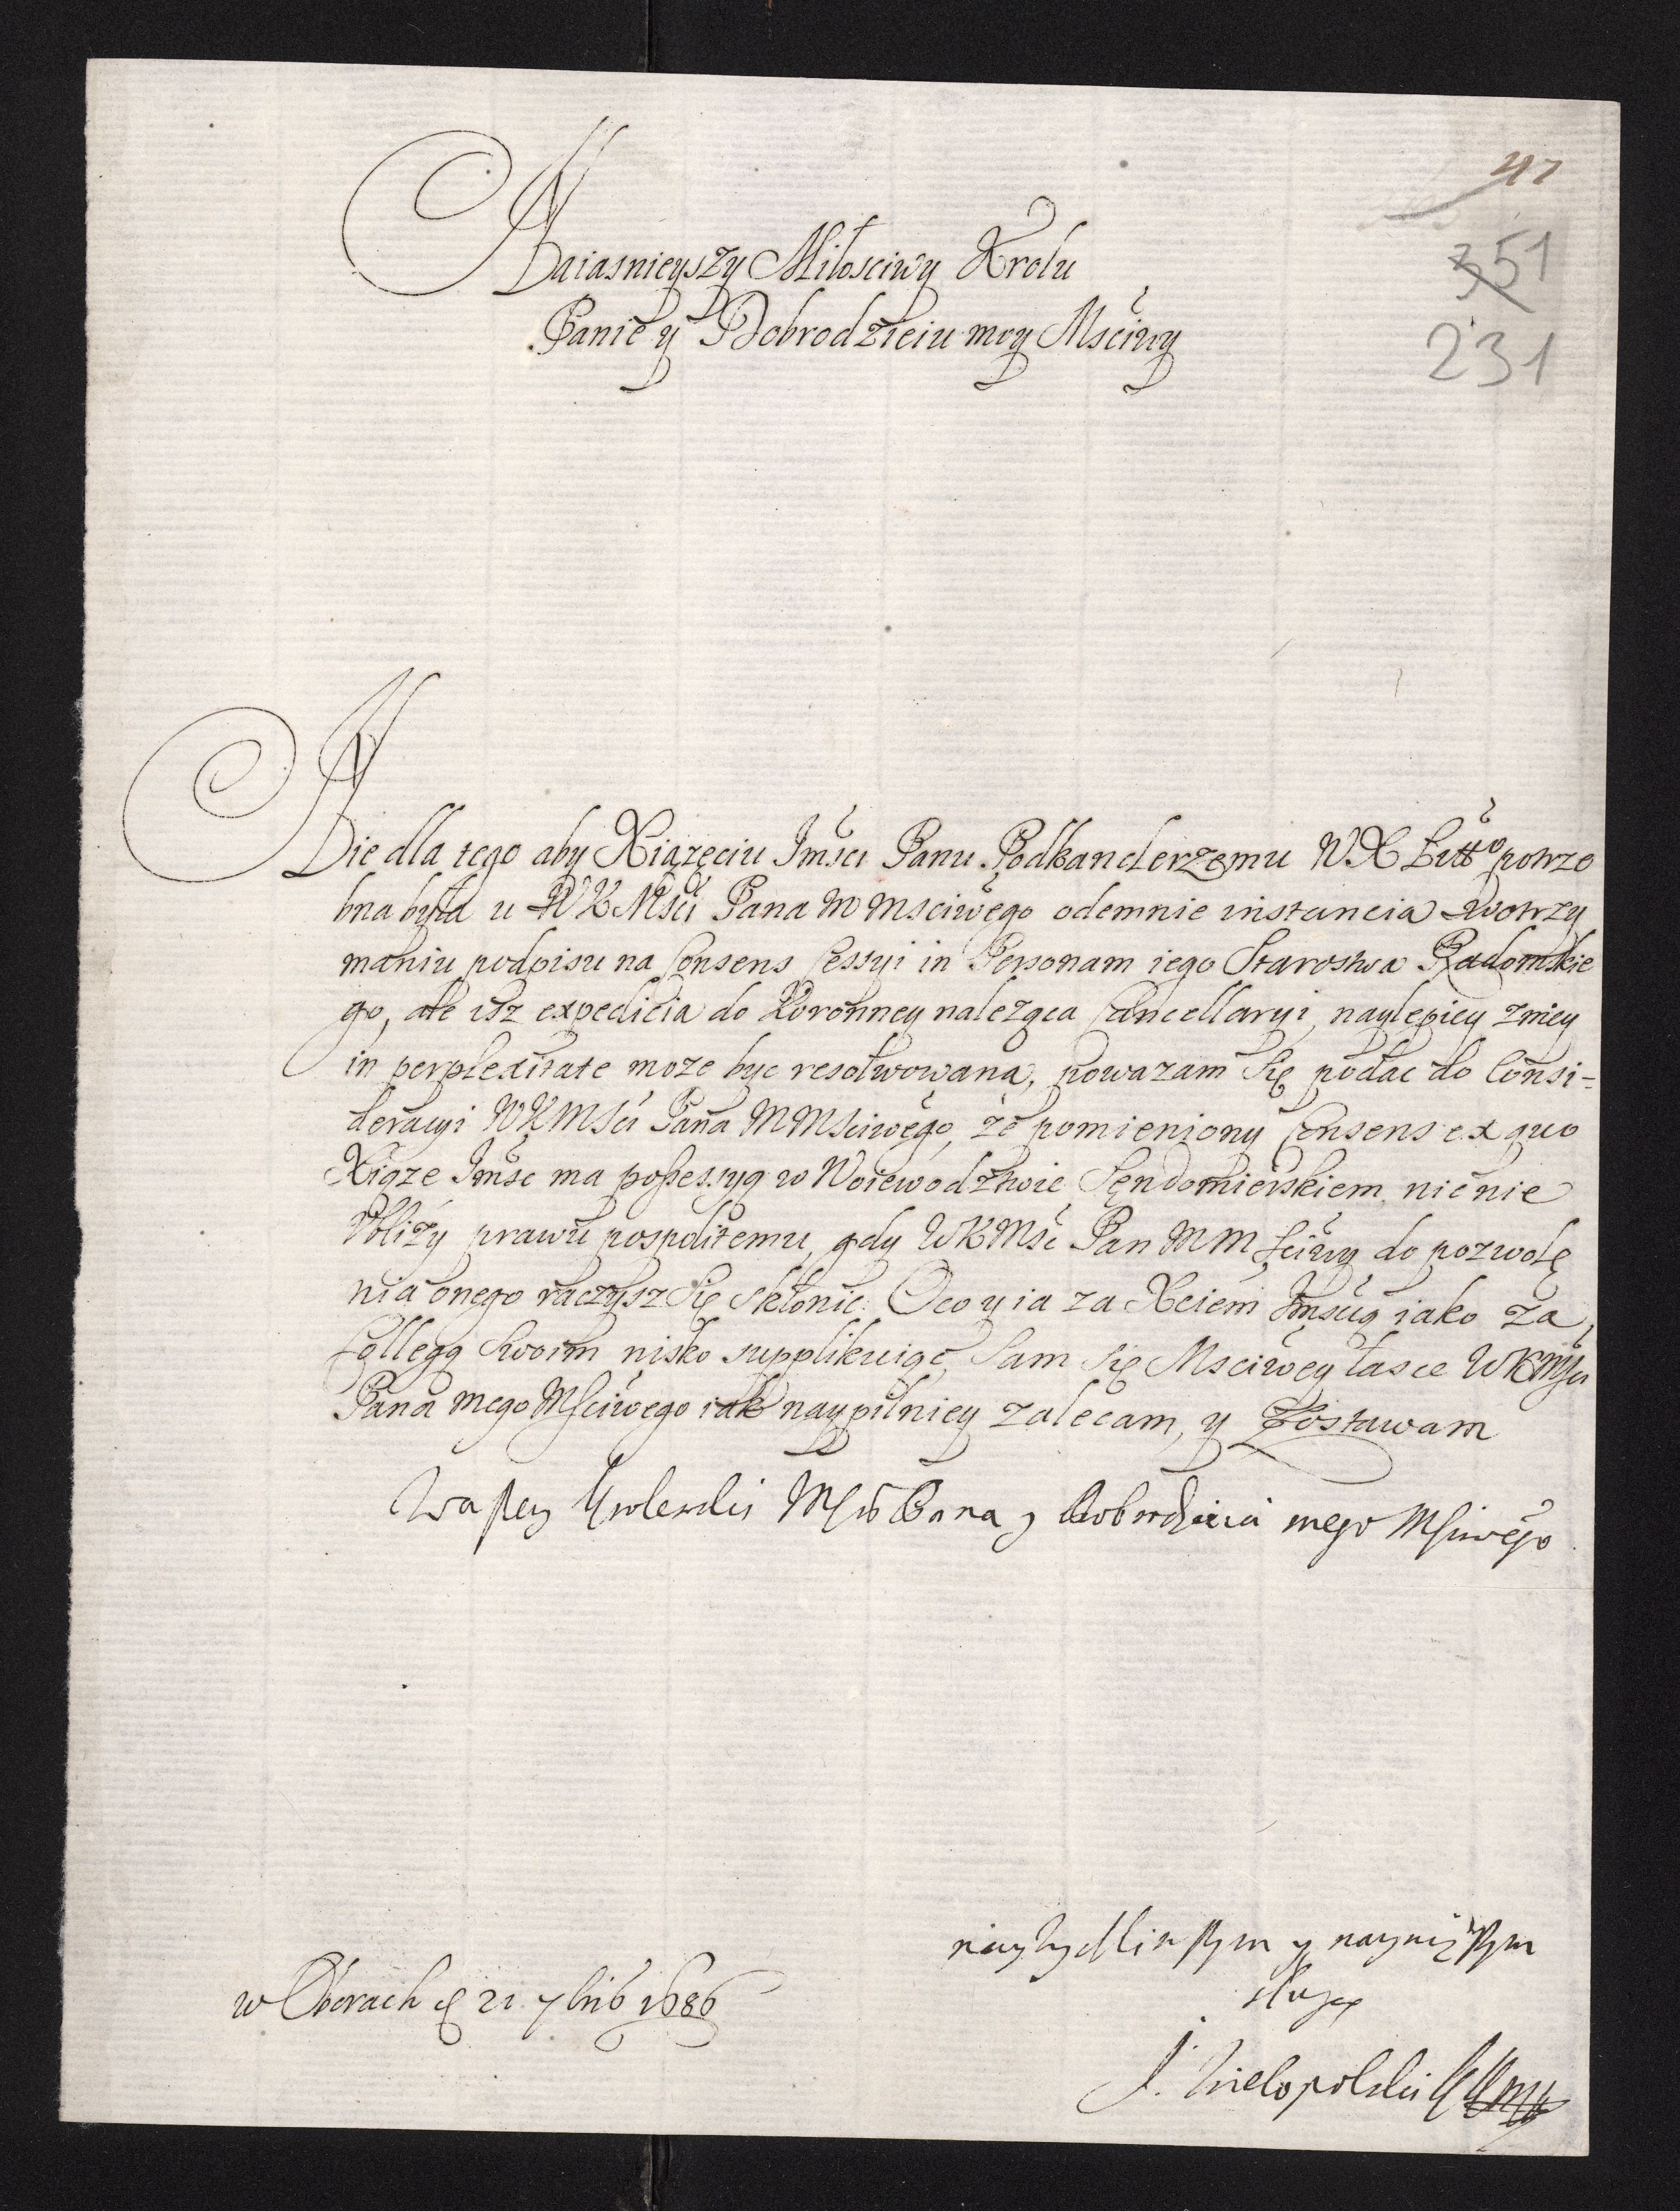 47
351
231
Naiasnieyszy Miłosciwy Krolu
Panie y Dobrodzieiu moy Msciwy
Nie dla tego aby Xiązęciu Jmsci Panu Podkanclerzemu WX Litto potrze
bna była u WKMsci Pana M Msciwego odemnie instancia wotrzy
maniu podpisu na Consens Cessyi in Personam iego Starostwa Radomskie
go, ale isz expedicia do Koronney naleząca Cancellaryi, naylepiey zniey
in perplexitate moze byc resolwowana, powazam się podac do Consi-
deracyi WKMsci Pana MMsciwego, ze pomieniony Consens ex quo
Xiąze Jmsc ma possessyą w Woiewodztwie Sęndomierskiem, nic nie
Vbliży prawu pospolitemu, gdy WKMsc Pan MMsciwy do pozwolę
nia onego raczysz się skłonic. Oco y ia za Xciem Jmscią iako za
Collegą swoim nisko supplikuiąc, sam się Msciwey łasce WKMsci
Pana mego Msciwego iak naypilniey zalecam, y Zostawam
Waszey Krolewski Msci Pana y Dobrodzieia mego Msciwego
w Oborach d 21 7bris 1686
nayzyczliwszym y naynizszym
sługą
J. Wielopolski